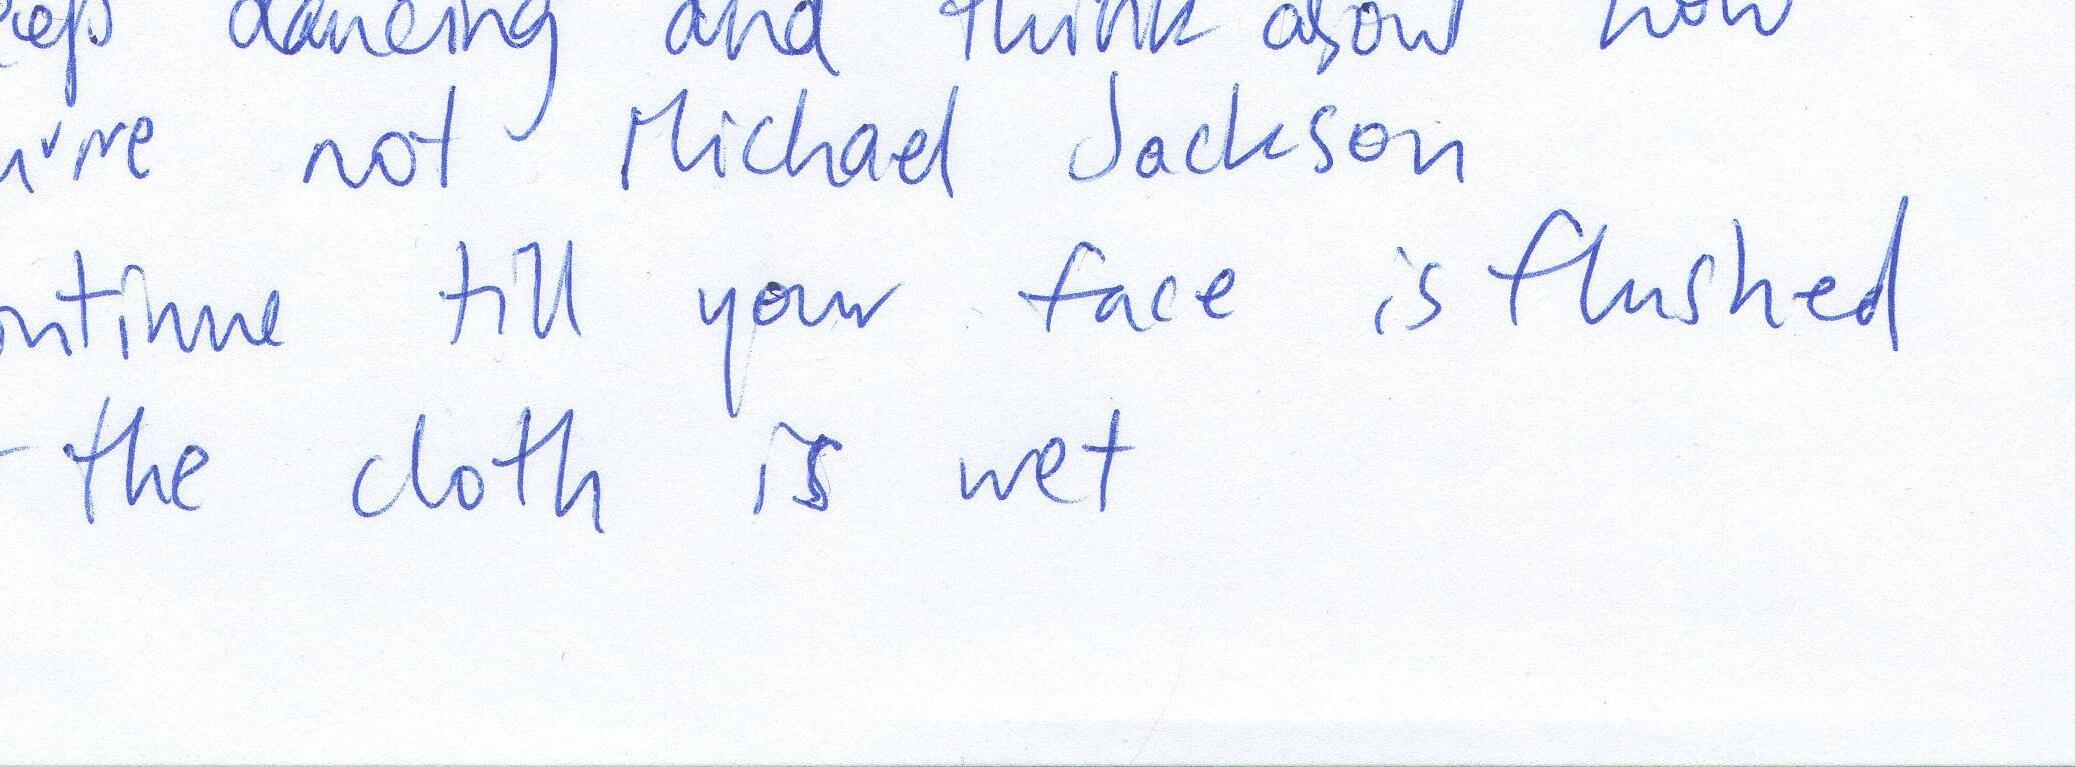 dancing and think about how
not Michael Jackson
till your face is flushed
the cloth is wet